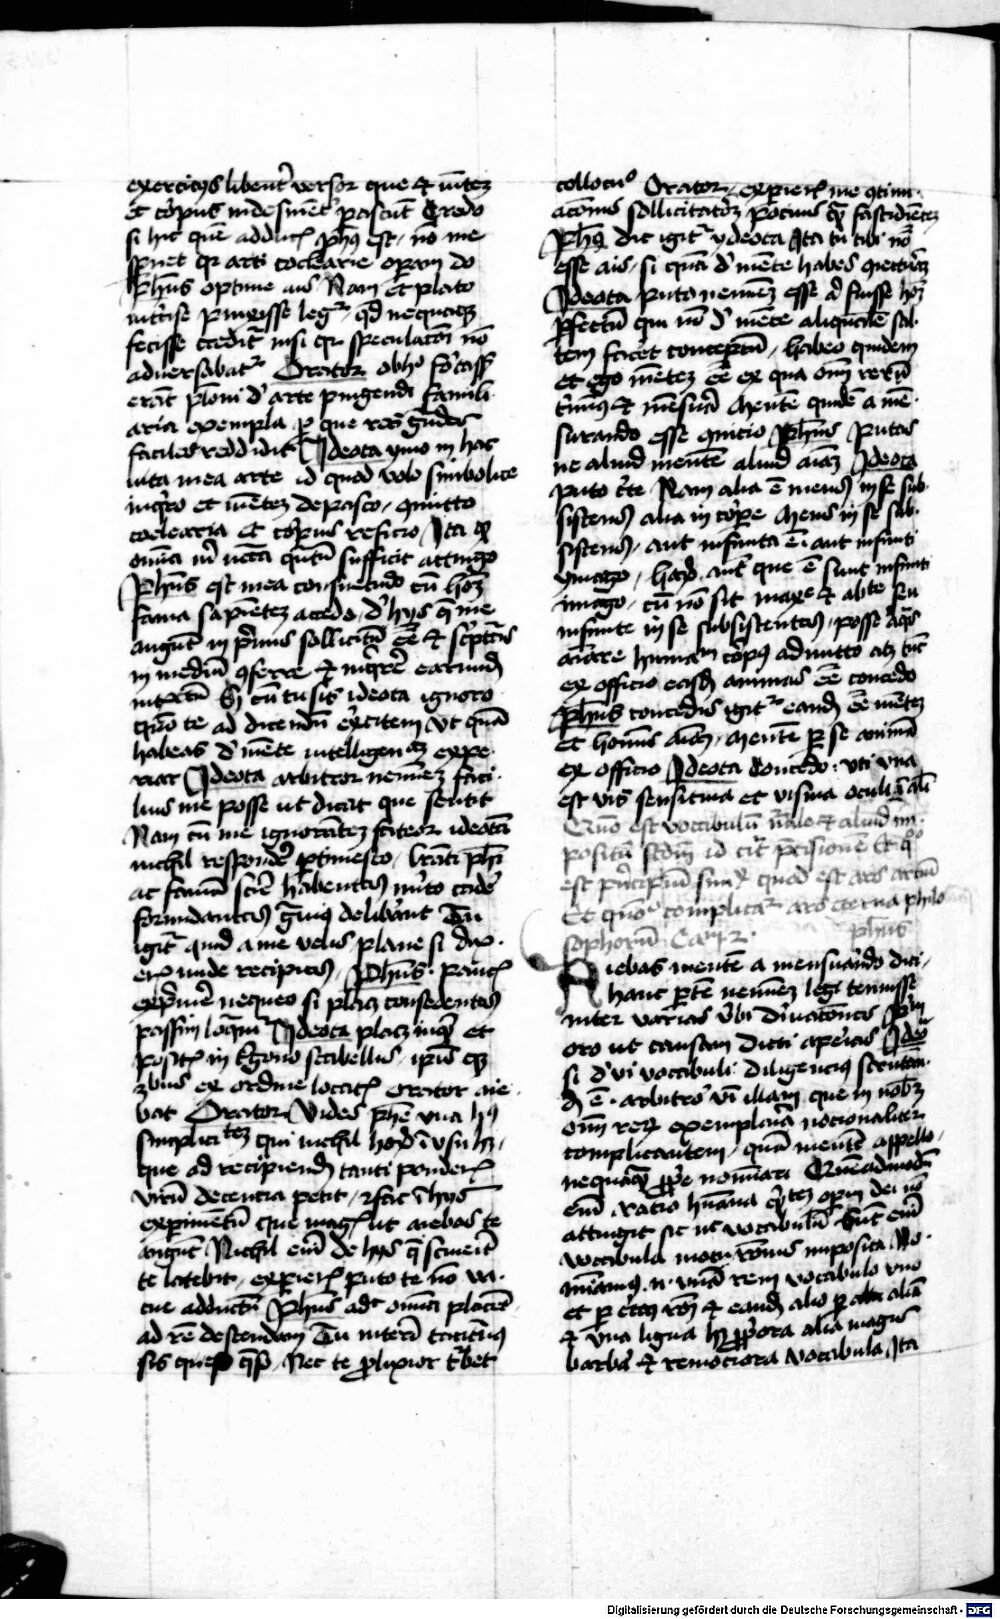 exercicijs libent' versor que et mente3
et corpus indesinent' pascūt Credo
si hic quē adducis ph̄us est / nō me
spernet qr arti coclearie operam do
Ph̄us optime ais / Nam et plato
int'cise pinxisse legr̄ / qd neququā
fecisse creditr̄ nisi qr speculatōni nō
adversabatr̄ Orator ob hoc fortasse
erāt platoni d' arte pingendi famili
aria exempla / p que res grandes
faciles reddidit Ideota ymo in hac
mea arte id quod volo simbolice
inquiro et mente3 depasco / cōmuto
coclearia et corpus reficio Ita qd
omnia michi necessaria quantū sufficit attingo
Ph̄us est mea consuetudo cū hoīem
fama sapiente3 accedo / d' hijs que me
angunt in primis sollicitū esse et scripturas
in mediū conferre et inquirere earundem
intellectū Sed cū tu sis ideota ignoro
quō te ad dicendū excitem ut quā
habeas d' mente intelligenciam expe
riar Ideota arbitror nemine3 faci
lius me posse ut dicat que sentit
Nam cū me ignorante3 fateor ideotā
nichil respondere ptimesco / lr̄ati ph̄i
ac famā scīe habentes merito cadere
formidantes gravius deliberant Tu
igitr̄ quid a me velis / plane si dix
eris nude recipies / Ph̄us paucis
exprimere nequeo si placet consedentes
passim loquamur Ideota placet inqt et
positis in trigono scabellis / ipsisq3
tribus ex ordine locatis orator aie
bat Orator Vides ph̄e viri huius
simplicitate3 qui nichil horum in usu habet
que ad recipiendū tanti ponderis
virū decencia petit / fac in hijs
experimētū que magis ut aiebas te
angunt Nichil eīm de hijs que sciverit
te latebit / experieris puto te nō va
cue adductū Ph̄us adhuc omnia placent
ad rē descendam Tu interim taciturnus
sis queso / Nec te prolixior turbet
collocutio Orator / experieris me cōtinu
acōnis sollicitatorem pocius quam fastidiente3
Ph̄us dic igitr̄ ydeota Ita tu tibi nomen
esse ais / si quam d' mente habes coniecturam
Ideota puto nemine3 esse aut fuisse hoīem
perfectū qui non d' mente aliqualem sal
tem fecerit conceptū / habeo quidem
et ego mente3 esse ex qua omnium rerum
terminus et mensura Mentē quidem a men
surando esse coniicio Ph̄us Putas
ne aliud mentē aliud aīam Ideota
puto certe Nam alia ē mens in se sub
sistens alia in corpore Mens in se sub
sistens / aut infinita ē aut infiniti
ymago / harum aut' que sunt infiniti
imago / cū nō sint maxē et absolute seu
infinite in se subsistentes / posse aliquas
aīare humana corpora admitto atque tunc
ex officio easdem animas esse concedo
Ph̄us concedis igitr̄ eandem esse mente3
et hominis aīam / Mentē per se animā
ex officio Ideota concedo : uti una
est vis sensitiva et visiva oculi in aīali
Quō est vocabulū nr̄ale et aliud im
positū sedm id citra precisionē Et quō
est principiū simplex quod est ars artiū
Et quō complicatr̄ ars eterna philo
sophorū Ca 2 Ph̄us
Aiebas mentē a mensurando dici /
hanc partē nemine3 legi tenuisse
inter varias verbi dirivacōnes Pri
oro ut causam dicti aperias Ideo
si d' vi vocabuli diligencius scrutan
dum ē arbitror vim illam que in nobis
omniū rerū exemplaria nocionaliter
complicantem / quā mentē appello
nequaqm proprie nominari Quemadmodum
eīm racio humana quidditatem operum dei nō
attingit sic nec vocabulū Sunt eīm
vocabula motu racōnis imposita No
minamus n. unā rem vocabulo uno
et per certam racōnem et eandem alio per aliam
et una ligua habet propriora alia magis
barbara et remociora vocabula Ita